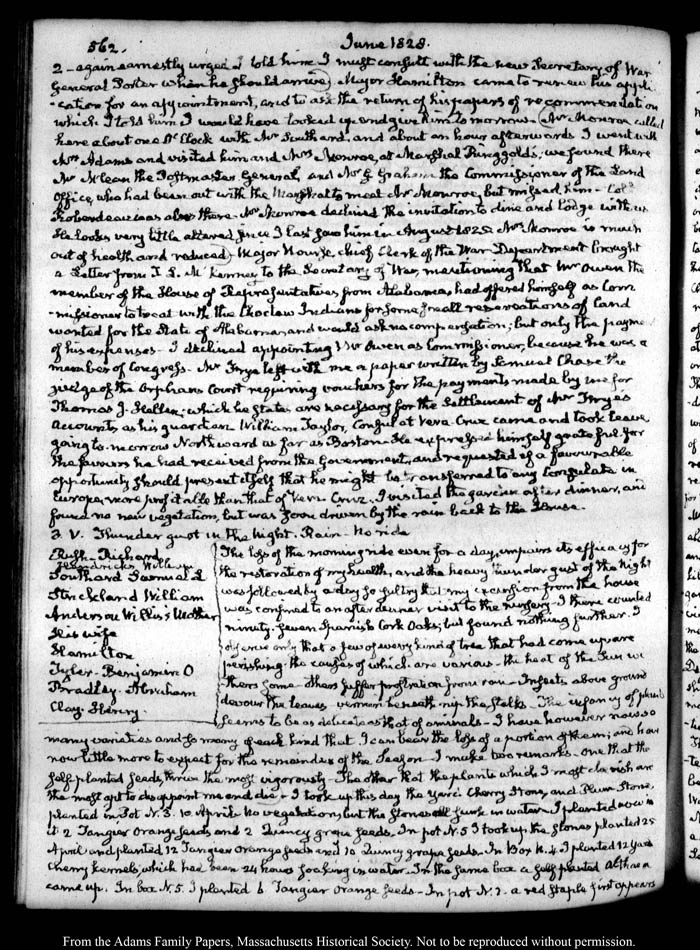 562.
June 1828.
2 - again earnestly urged. I told him I must consult with the new Secretary of War
General Porter when he should arrive. Major Hamilton came to renew his appli-
-cation for an appointment, and to ask the return of his papers of recommendation
which I told him I would have looked up and give him tomorrow. Mr Monroe called
here about one O'Clock with Mr Southard, and about an hour afterwards I went with
Mrs Adams and visited him and Mrs Monroe, at Marshal Ringgold's; we found there
Mr McLean the Postmaster General, and Mr G. Graham the Commissioner of the Land
Office, who had been out with the Marshal to meet Mr Monroe, but missed him - Coll
Roberdeau was also there. Mr Monroe declined the invitation to dine and lodge with us
He looks very little altered since I last saw him in August 1825. Mrs Monroe is much
out of health and reduced. Major Nourse, chief Clerk of the War Department brought
a Letter from T. L. McKenney to the Secretary of War, mentioning that Mr Owen the
member of the House of Representatives from Alabama, had offered himself as Com
-missioner to treat with the Choctaw Indians for some small reservations of land
wanted for the State of Alabama, and would ask no compensation; but only the payme
of his expenses - I declined appointing Mr Owen as Commissioner, because he was a
member of Congress. Mr Frye left with me a paper written by Samuel Chase the
judge of the Orphans Court requiring vouchers for the payments made by me for
Thomas J. Hellen; which he states are necessary for the settlement of Mr Frye's
accounts, as his guardian. William Taylor, Consul at Vera Cruz came and took leave
going to-morrow Northward as far as Boston - He expressed himself grateful for
the favours he had received from the Government, and requested if a favourable
opportunity should present itself that he might be transferred to any Consulate in
Europe, more profitable than that of Vera Cruz. I visited the garden after dinner, and
found no new vegetation, but was soon driven by the rain back to the House.
3. V. Thunder gust in the Night. Rain - No ride
Rush - Richard
Hendricks William
Southard Samuel L
Strickland William
Anderson Willis's Mother
His wife
Hamilton
Tyler - Benjamin O
Bradley Abraham
Clay Henry.
The loss of the morning ride even for a day, impairs its efficacy for
the restoration of my health, and the heavy thunder gust of the Night
was followed by a day so sultry that my excursion from the house
was confined to an after dinner visit to the nursery - I there counted
ninety-seven Spanish Cork Oaks; but found nothing further. I
observe only that a few of every kind of tree that had come up are
perishing: the causes of which are various - the heat of the Sun wi
thers some. Others suffer prostration from rain - Insects above ground
devour the leaves vermin beneath nip the stalks - The infancy of plants
seems to be as delicate as that of animals - I have however now so
many varieties and so many of each kind that I can bear the loss of a portion of them; and have
now little more to expect for the remainder of the Season - I make two remarks. One that the
self planted seeds, thrive the most vigorously - The other that the plants which I most cherish are
the most apt to disappoint me and die - I took up this day the yard Cherry Stones, and Plum Stones,
planted in Pot N. 3. 10 April. No vegetation, but the stones all sunk in water. I planted now in
it 2 Tangier Orange seeds and 2 Quincy grape seeds. In pot N. 5 I took up the stones planted 25
April and planted 12 Tangier Orange seeds and 10 Quincy grape seeds - In Box N. 4 I planted 12 yard
Cherry kernels which had been 24 hours soaking in water - In the same box a self planted Althaea
came up. In box N. 5. I planted 6 Tangier Orange seeds - In pot N. 2. a red staple first appears
From the Adams Family Papers, Massachusetts Historical Society. Not to be reproduced without permission.